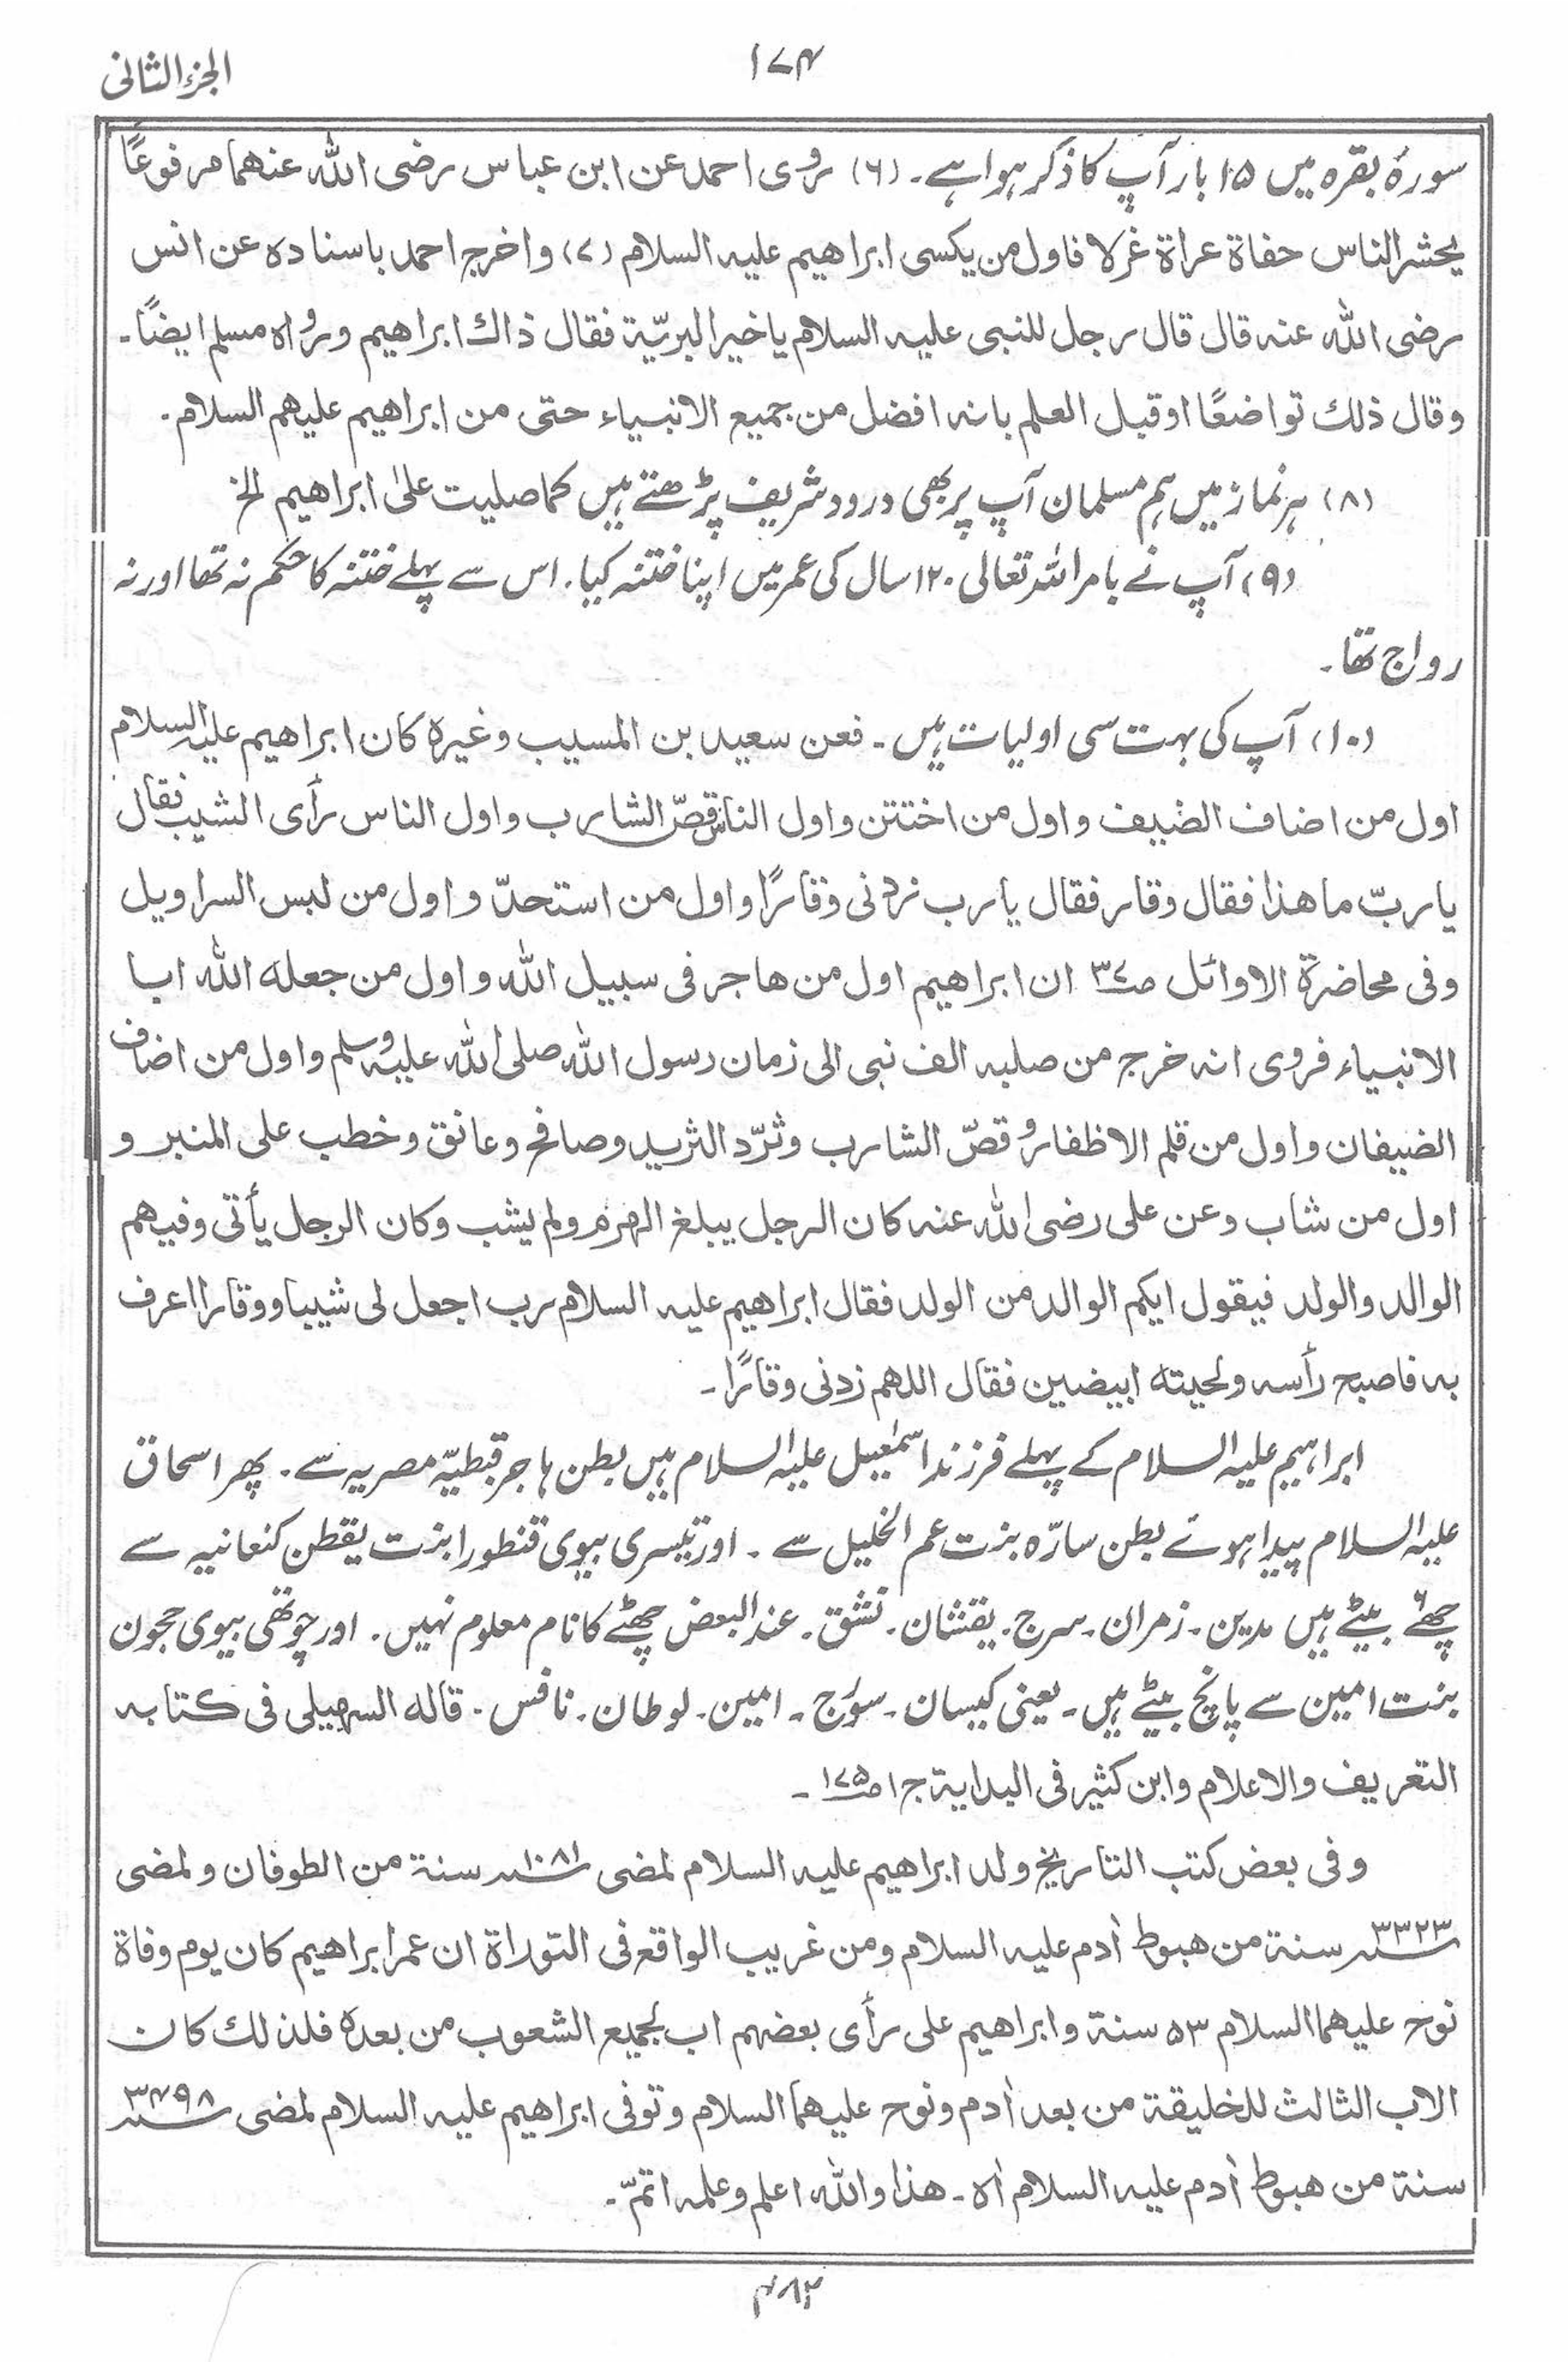 الجزء الثانی
۱۷۴
سورۂ بقرہ میں ۱۵ بار آپ کا ذکر ہوا ہے۔ (۶) روی احمد عن ابن عباس رضی اللہ عنهما مرفوعًا
یحشر الناس حفاۃ عراۃ غرلا فاول من یکسی ابراهیم علیہ السلام (۷) واخرج احمد باسنادہ عن انس
رضی اللہ عنہ قال قال رجل للنبی علیہ السلام یا خیر البریّۃ فقال ذاك ابراهیم ورواہ مسلم ایضًا۔
وقال ذلك تواضعًا او قبل العلم بانہ افضل من جمیع الانبیاء حتی من ابراهیم علیهم السلام۔
(۸) ہر نماز میں ہم مسلمان آپ پر بھی درود شریف پڑھتے ہیں کما صلیت علیٰ ابراهیم الخ
(۹) آپ نے بامر اللہ تعالی ۱۲۰ سال کی عمر میں اپنا ختنہ کیا۔ اس سے پہلے ختنہ کا حکم نہ تھا اور نہ
رواج تھا۔
(۱۰) آپ کی بہت سی اولیات ہیں۔ فعن سعید بن المسیب وغیرہ کان ابراهیم علیہ السلام
اول من اضاف الضیف واول من اختتن واول الناس قصّ الشارب واول الناس رأی الشیب فقال
یا ربّ ما هذا فقال وقار فقال یا رب زدنی وقارًا واول من استحدّ واول من لبس السراویل
وفی محاضرۃ الاوائل صـ۳۷ ان ابراهیم اول من هاجر فی سبیل اللہ واول من جعلہ اللہ ابا
الانبیاء فروی انہ خرج من صلبہ الف نبی الی زمان رسول اللہ صلی اللہ علیہ وسلم واول من اضاف
الضیفان واول من قلم الاظفار وقصّ الشارب وثرّد الثرید وصافح وعانق وخطب علی المنبر و
اول من شاب وعن علی رضی اللہ عنہ کان الرجل یبلغ الهرم ولم یشب وکان الرجل یأتی وفیهم
الوالد والولد فیقول ایکم الوالد من الولد فقال ابراهیم علیہ السلام رب اجعل لی شیبا ووقارا اعرف
بہ فاصبح رأسہ ولحیتہ ابیضین فقال اللهم زدنی وقارًا۔
ابراہیم علیہ السلام کے پہلے فرزند اسمٰعیل علیہ السلام ہیں بطن ہاجر قبطیّہ مصریہ سے۔ پھر اسحاق
علیہ السلام پیدا ہوئے بطن سارّہ بنت عم الخلیل سے۔ اور تیسری بیوی قنطورا بنت یقطن کنعانیہ سے
چھ۶ بیٹے ہیں مدین۔ زمران۔ سرج۔ یقنشان۔ نشق۔ عند البعض چھٹے کا نام معلوم نہیں۔ اور چوتھی بیوی حجون
بنت امین سے پانچ بیٹے ہیں۔ یعنی کیسان۔ سوَرج۔ امین۔ لوطان۔ نافس۔ قالہ السهیلی فی کتابہ
التعریف والاعلام وابن کثیر فی البدایۃ ج۱ صـ۱۷۵۔
وفی بعض کتب التاریخ ولد ابراهیم علیہ السلام لمضی ۱۰۸۱ سنۃ من الطوفان ولمضی
۳۳۲۳ سنۃ من هبوط اٰدم علیہ السلام ومن غریب الواقع فی التوراۃ ان عمر ابراهیم کان یوم وفاۃ
نوح علیهما السلام ۵۳ سنۃ وابراهیم علی رأی بعضهم اب لجمیع الشعوب من بعدہ فلذلك کان
الاب الثالث للخلیقۃ من بعد اٰدم ونوح علیهما السلام وتوفی ابراهیم علیہ السلام لمضی ۳۴۹۸
سنۃ من هبوط اٰدم علیہ السلام اٰہ۔ هذا واللہ اعلم وعلمہ اتمّ۔
۴۸۲